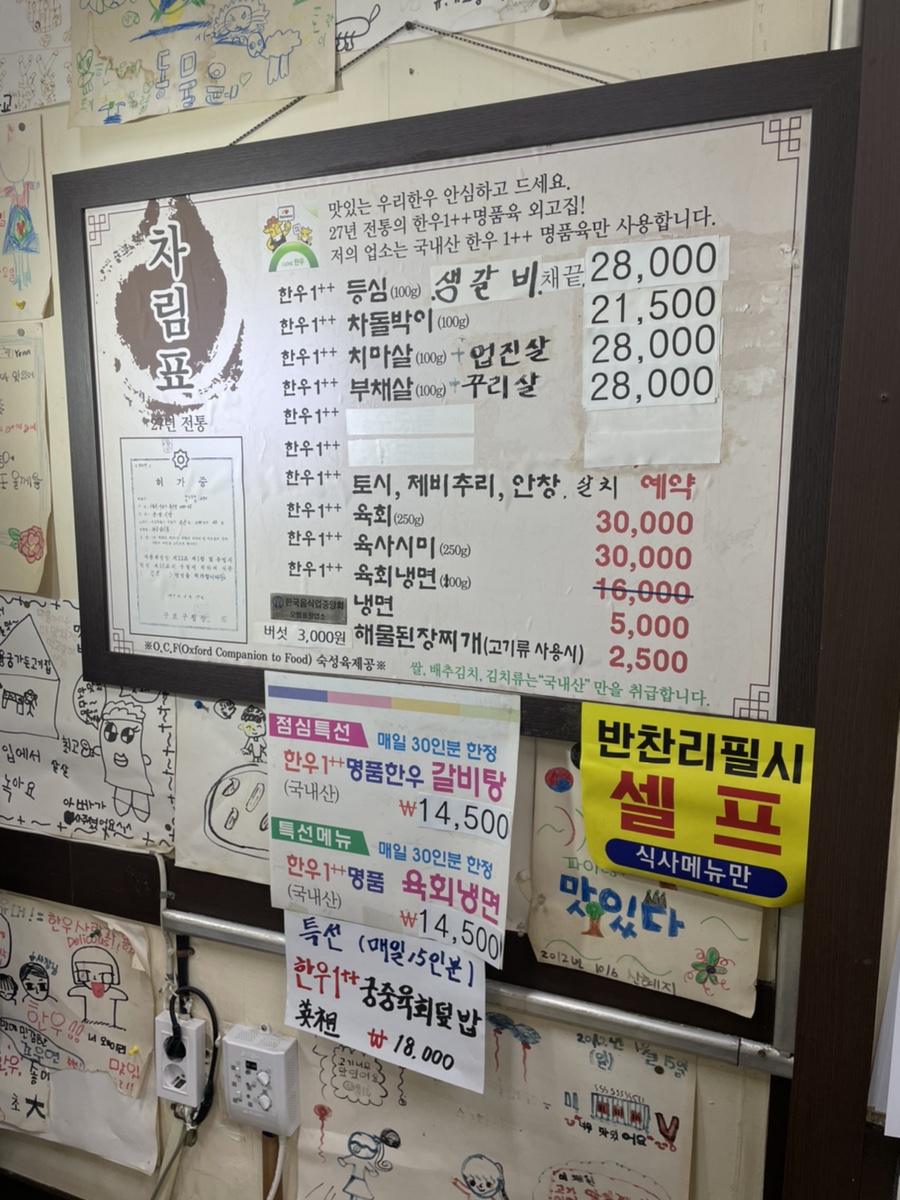 동물원
차림표
27년 전통
허가증
맛있는 우리한우 안심하고 드세요.
27년 전통의 한우1++명품육 외고집!
저의 업소는 국내산 한우 1++ 명품육만 사용합니다.
한우1++ 등심(100g) .생갈비.채끝 28,000
한우1++ 차돌박이(100g) 21,500
한우1++ 치마살(100g) + 업진살 28,000
한우1++ 부채살(100g) + 꾸리살 28,000
한우1++
한우1++
한우1++ 토시, 제비추리, 안창. 살치 예약
한우1++ 육회(250g) 30,000
한우1++ 육사시미(250g) 30,000
한우1++ 육회냉면(100g) 16,000
냉면 5,000
한국음식업중앙회
모범음식업소
버섯 3,000원 해물된장찌개(고기류 사용시) 2,500
※O,C,F(Oxford Companion to Food) 숙성육제공※
쌀, 배추김치, 김치류는"국내산" 만을 취급합니다.
점심특선 매일 30인분 한정
한우1++명품한우 갈비탕
(국내산)
₩14,500
특선메뉴 매일 30인분 한정
한우1++명품 육회냉면
(국내산)
₩14,500
특선 (매일 15인분)
한우1++궁중육회덮밥
₩ 18.000
반찬리필시
셀프
식사메뉴만
맛있다
2012년 10/6
입에서
녹아요
최고
살살
한우사랑
Delicious!
한우!!